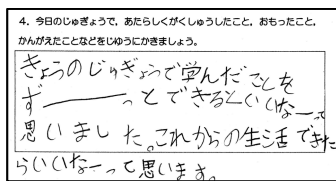 4．今日のじゅぎょうで，あたらしくがくしゅうしたこと，おもったこと，
かんがえたことなどをじゆうにかきましょう。
きょうのじゅぎょうで学んだことを
ず―――っとできるといいなーって
思いました。これからの生活できた
らいいなーって思います。